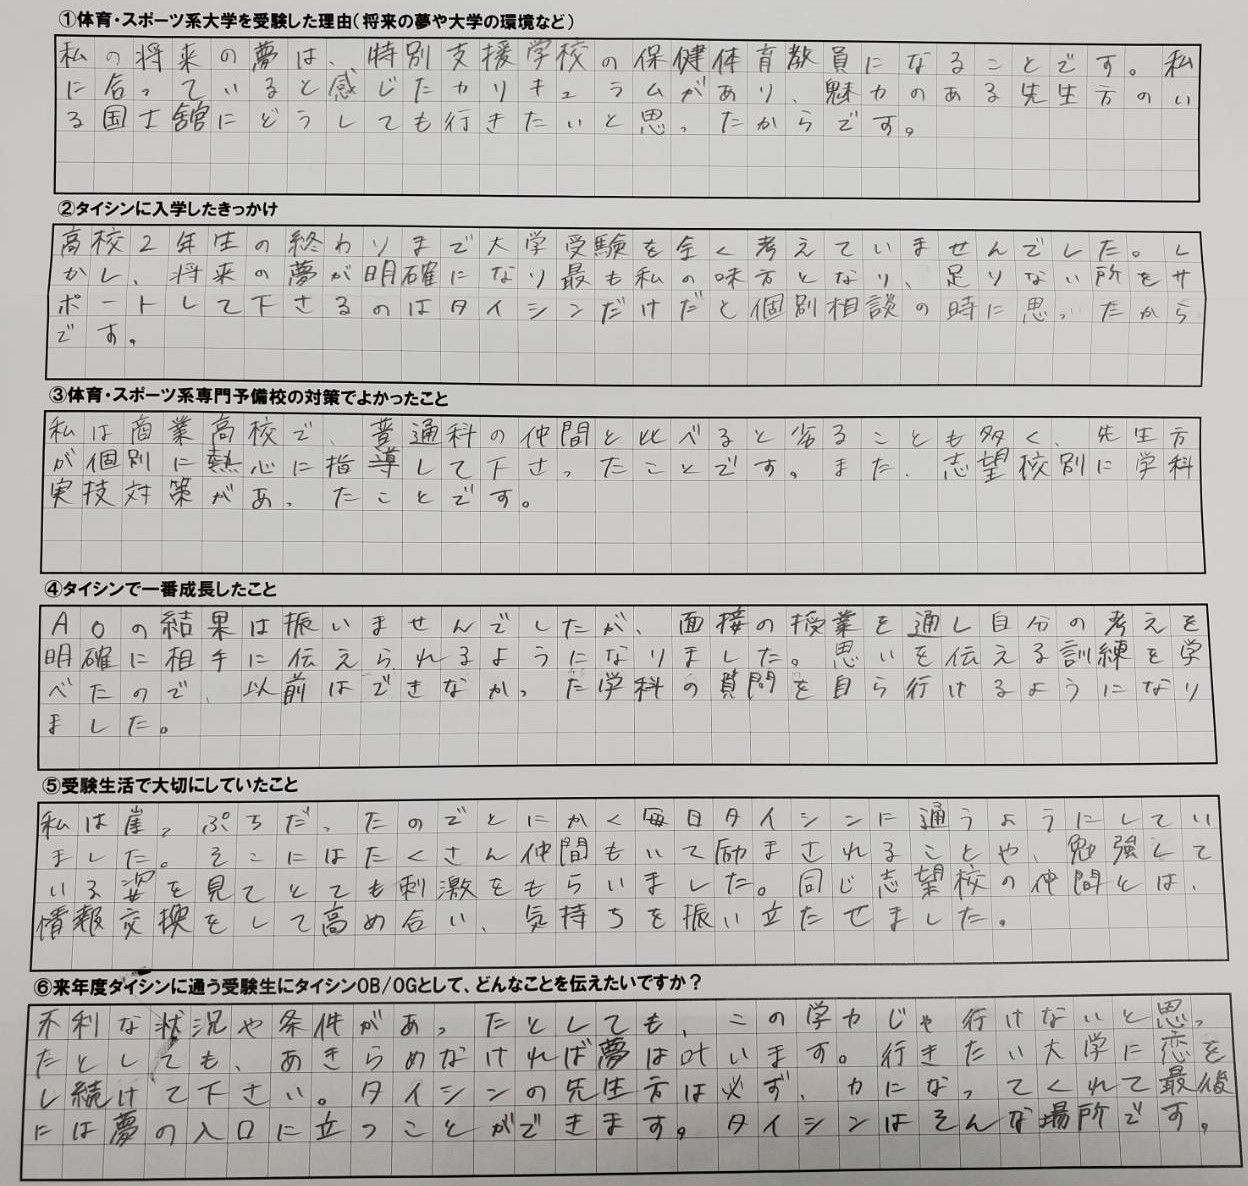 ①体育・スポーツ系大学を受験した理由(将来の夢や大学の環境など)
私の将来の夢は、特別支援学校の保健体育教員になることです。私
に合っていると感じたカリキュラムがあり、魅力のある先生方のい
る国士舘にどうしても行きたいと思ったからです。
②タイシンに入学したきっかけ
高校2年生の終わりまで大学受験を全く考えていませんでした。し
かし、将来の夢が明確になり最も私の味方となり、足りない所をサ
ポートして下さるのはタイシンだけだと個別相談の時に思ったから
です。
③体育・スポーツ系専門予備校の対策でよかったこと
私は商業高校で、普通科の仲間と比べると劣ることも多く、先生方
が個別に熱心に指導して下さったことです。また、志望校別に学科
実技対策があったことです。
④タイシンで一番成長したこと
AOの結果は振いませんでしたが、面接の授業を通し自分の考えを
明確に相手に伝えられるようになりました。思いを伝える訓練を学
べたので、以前はできなかった学科の質問を自ら行けるようになり
ました。
⑤受験生活で大切にしていたこと
私は崖っぷちだったのでとにかく毎日タイシンに通うようにしてい
ました。そこにはたくさん仲間もいて励まされることや、勉強して
いる姿を見てとても刺激をもらいました。同じ志望校の仲間とは、
情報交換をして高め合い、気持ちを振い立たせました。
⑥来年度タイシンに通う受験生にタイシンOB/OGとして、どんなことを伝えたいですか？
不利な状況や条件があったとしても、この学力じゃ行けないと思っ
たとしても、あきらめなければ夢は叶います。行きたい大学に恋を
し続けて下さい。タイシンの先生方は必ず、力になってくれて最後
には夢の入口に立つことができます。タイシンはそんな場所です。